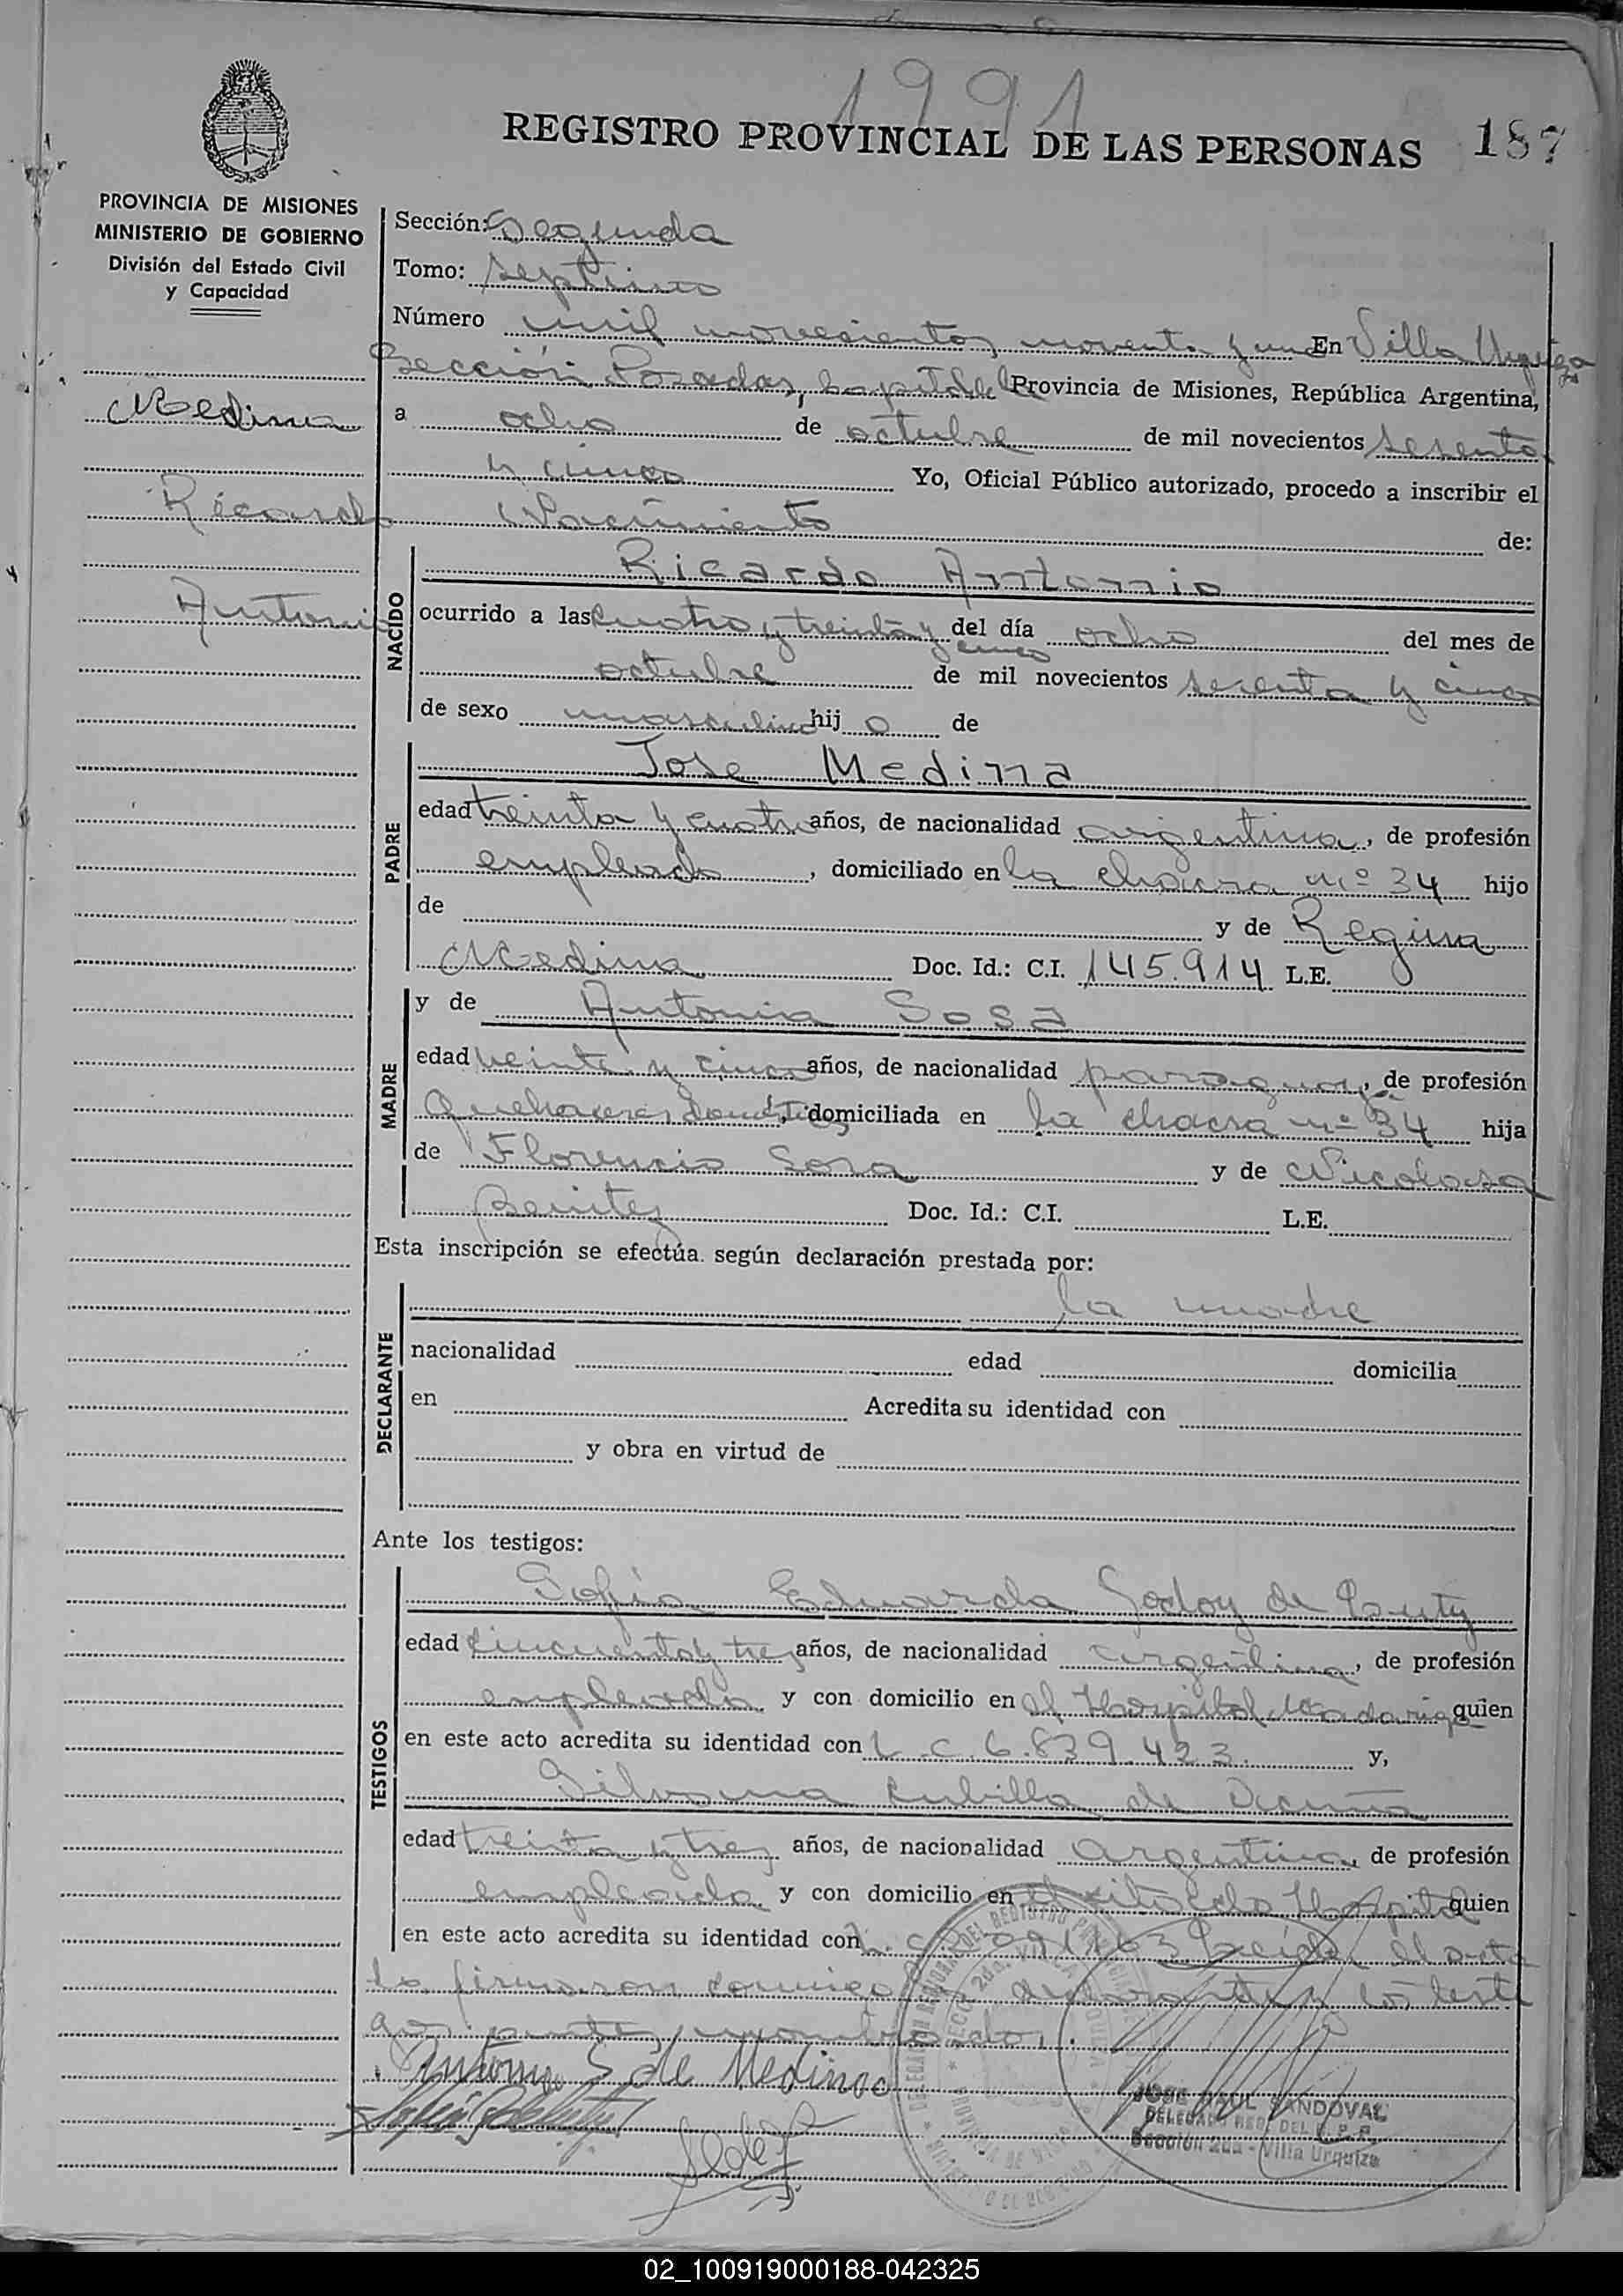 1991
REGISTRO PROVINCIAL DE LAS PERSONAS 187
PROVINCIA DE MISIONES
MINISTERIO DE GOBIERNO
División del Estado Civil
y Capacidad
Medina
Ricardo
Antonio
Sección: Segunda
Tomo: septimo
Número mil novecientos noventa y uno En Villa Urquiza
Sección Posadas, capital de la Provincia de Misiones, República Argentina,
a ocho de octubre de mil novecientos sesenta
y cinco Yo, Oficial Público autorizado, procedo a inscribir el
Nacimiento de:
NACIDO
Ricardo Antonio
ocurrido a las cuatro y treinta y cinco del día ocho del mes de
octubre de mil novecientos sesenta y cinco
de sexo masculino hijo de
PADRE
Jose Medina
edad treinta y cuatro años, de nacionalidad argentina, de profesión
empleado, domiciliado en la chacra nº 34 hijo
de y de Regina
Medina Doc. Id.: C.I. 145.914 L.E.
MADRE
y de Antonia Sosa
edad veinte y cinco años, de nacionalidad paraguaya, de profesión
Quehaceres domésticos, domiciliada en la chacra nº 34 hija
de Florencio Sosa y de Nicolasa
Benitez Doc. Id.: C.I. L.E.
Esta inscripción se efectúa según declaración prestada por:
DECLARANTE
la madre
nacionalidad edad domicilia
en Acredita su identidad con
y obra en virtud de
Ante los testigos:
TESTIGOS
Sofia Eduarda Godoy de
edad cincuenta y tres años, de nacionalidad argentina, de profesión
empleada y con domicilio en el Hospital Madariaga quien
en este acto acredita su identidad con L.C. 6.839.423 y,
Silvana Cubilla de
edad treinta y tres años, de nacionalidad argentina, de profesión
empleada y con domicilio en el citado Hospital quien
en este acto acredita su identidad con L.C. Leída el acta
la firmaron conmigo la declarante y los testi
gos antes nombrados.
Antonia S de Medina
JOSE RAUL SANDOVAL
DELEGADO RED. DEL R. P. P.
Sección 2da - Villa Urquiza
02_100919000188-042325